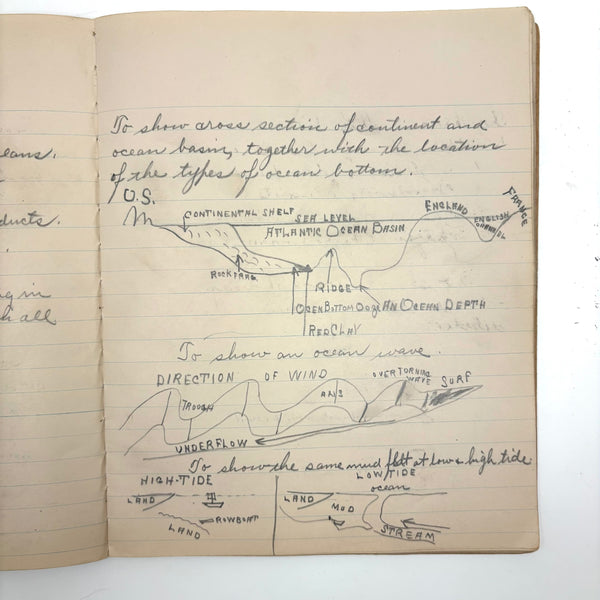 eans.
ducts.
g in
h all
To show cross section of continent and
ocean basin, together with the location
of the types of ocean bottom.
U.S.
CONTINENTAL SHELF
SEA LEVEL
ATLANTIC OCEAN BASIN
ENGLAND
ENGLISH CHANNEL
FRANCE
ROCK FRAG.
RIDGE
OCEN BOTTOM OOZE
AN OCEAN DEPTH
RED CLAY
To show an ocean wave.
DIRECTION OF WIND
OVERTURNING
WAVE
SURF
TROUGH
UNDERFLOW
To show the same mud flatt at low & high tide
HIGH-TIDE
LOW TIDE
ocean
LAND
ROWBOAT
LAND
LAND
MUD
STREAM